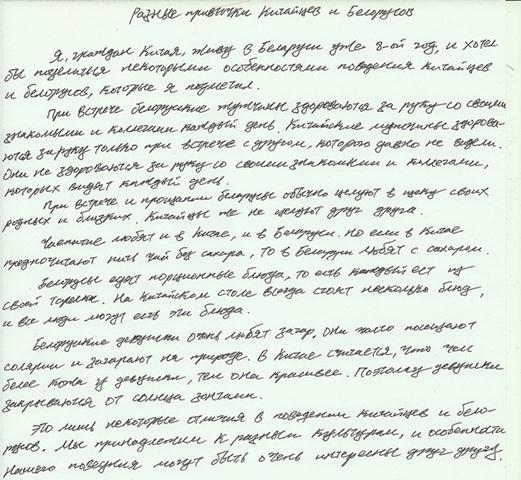 Разные привычки Китайцев и Белорусов
Я, гражданин Китая, живу в Беларуси уже 3-ой год, и хотел
бы поделиться некоторыми особенностями поведения китайцев
и белорусов, которые я подметил.
При встрече белорусские мужчины здороваются за руку со своими
знакомыми и коллегами каждый день. Китайские мужчины здорова-
ются за руку только при встрече с другом, которого давно не видели.
Они не здороваются за руку со своими знакомыми и коллегами,
которых видят каждый день.
При встрече и прощании белорусы обычно целуют в щеку своих
родных и близких. Китайцы же не целуют друг друга.
Чаепитие любят и в Китае, и в Беларуси. Но если в Китае
предпочитают пить чай без сахара, то в Беларуси любят с сахаром.
Белорусы едят порционные блюда, то есть каждый ест из
своей тарелки. На Китайском столе всегда стоят несколько блюд,
и все люди могут есть эти блюда.
Белорусские девушки очень любят загар. Они часто посещают
солярии и загорают на природе. В Китае считается, что чем
белее кожа у девушки, тем она красивее. Поэтому девушки
закрываются от солнца зонтами.
Это лишь некоторые отличия в поведении китайцев и бело-
русов. Мы принадлежим к разным культурам, и особенности
нашего поведения могут быть очень интересны друг другу.